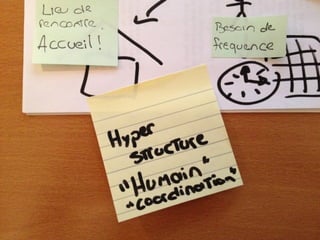 Lieu de
rencontre.
Accueil!
Besoin de
fréquence
Hyper
structure
"Humain"
"coordination"